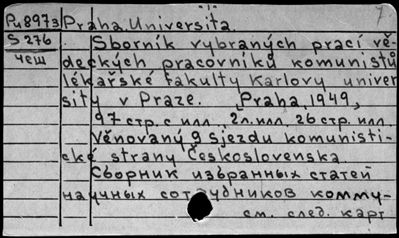 Рц8973 Praha. Universita.
S 276 Sborník vybraných prací vě-
чеш deckých pracovníků komunistů
lékařské fakulty Karlovy univer
sity v Praze. Praha, 1949,
97 стр. с илл. 2 л. илл. 26 стр. илл.
Věnovaný 9 sjezdu komunisti-
cké strany Československa
Сборник избранных статей
научных сотрудников комму-
см. след. карт